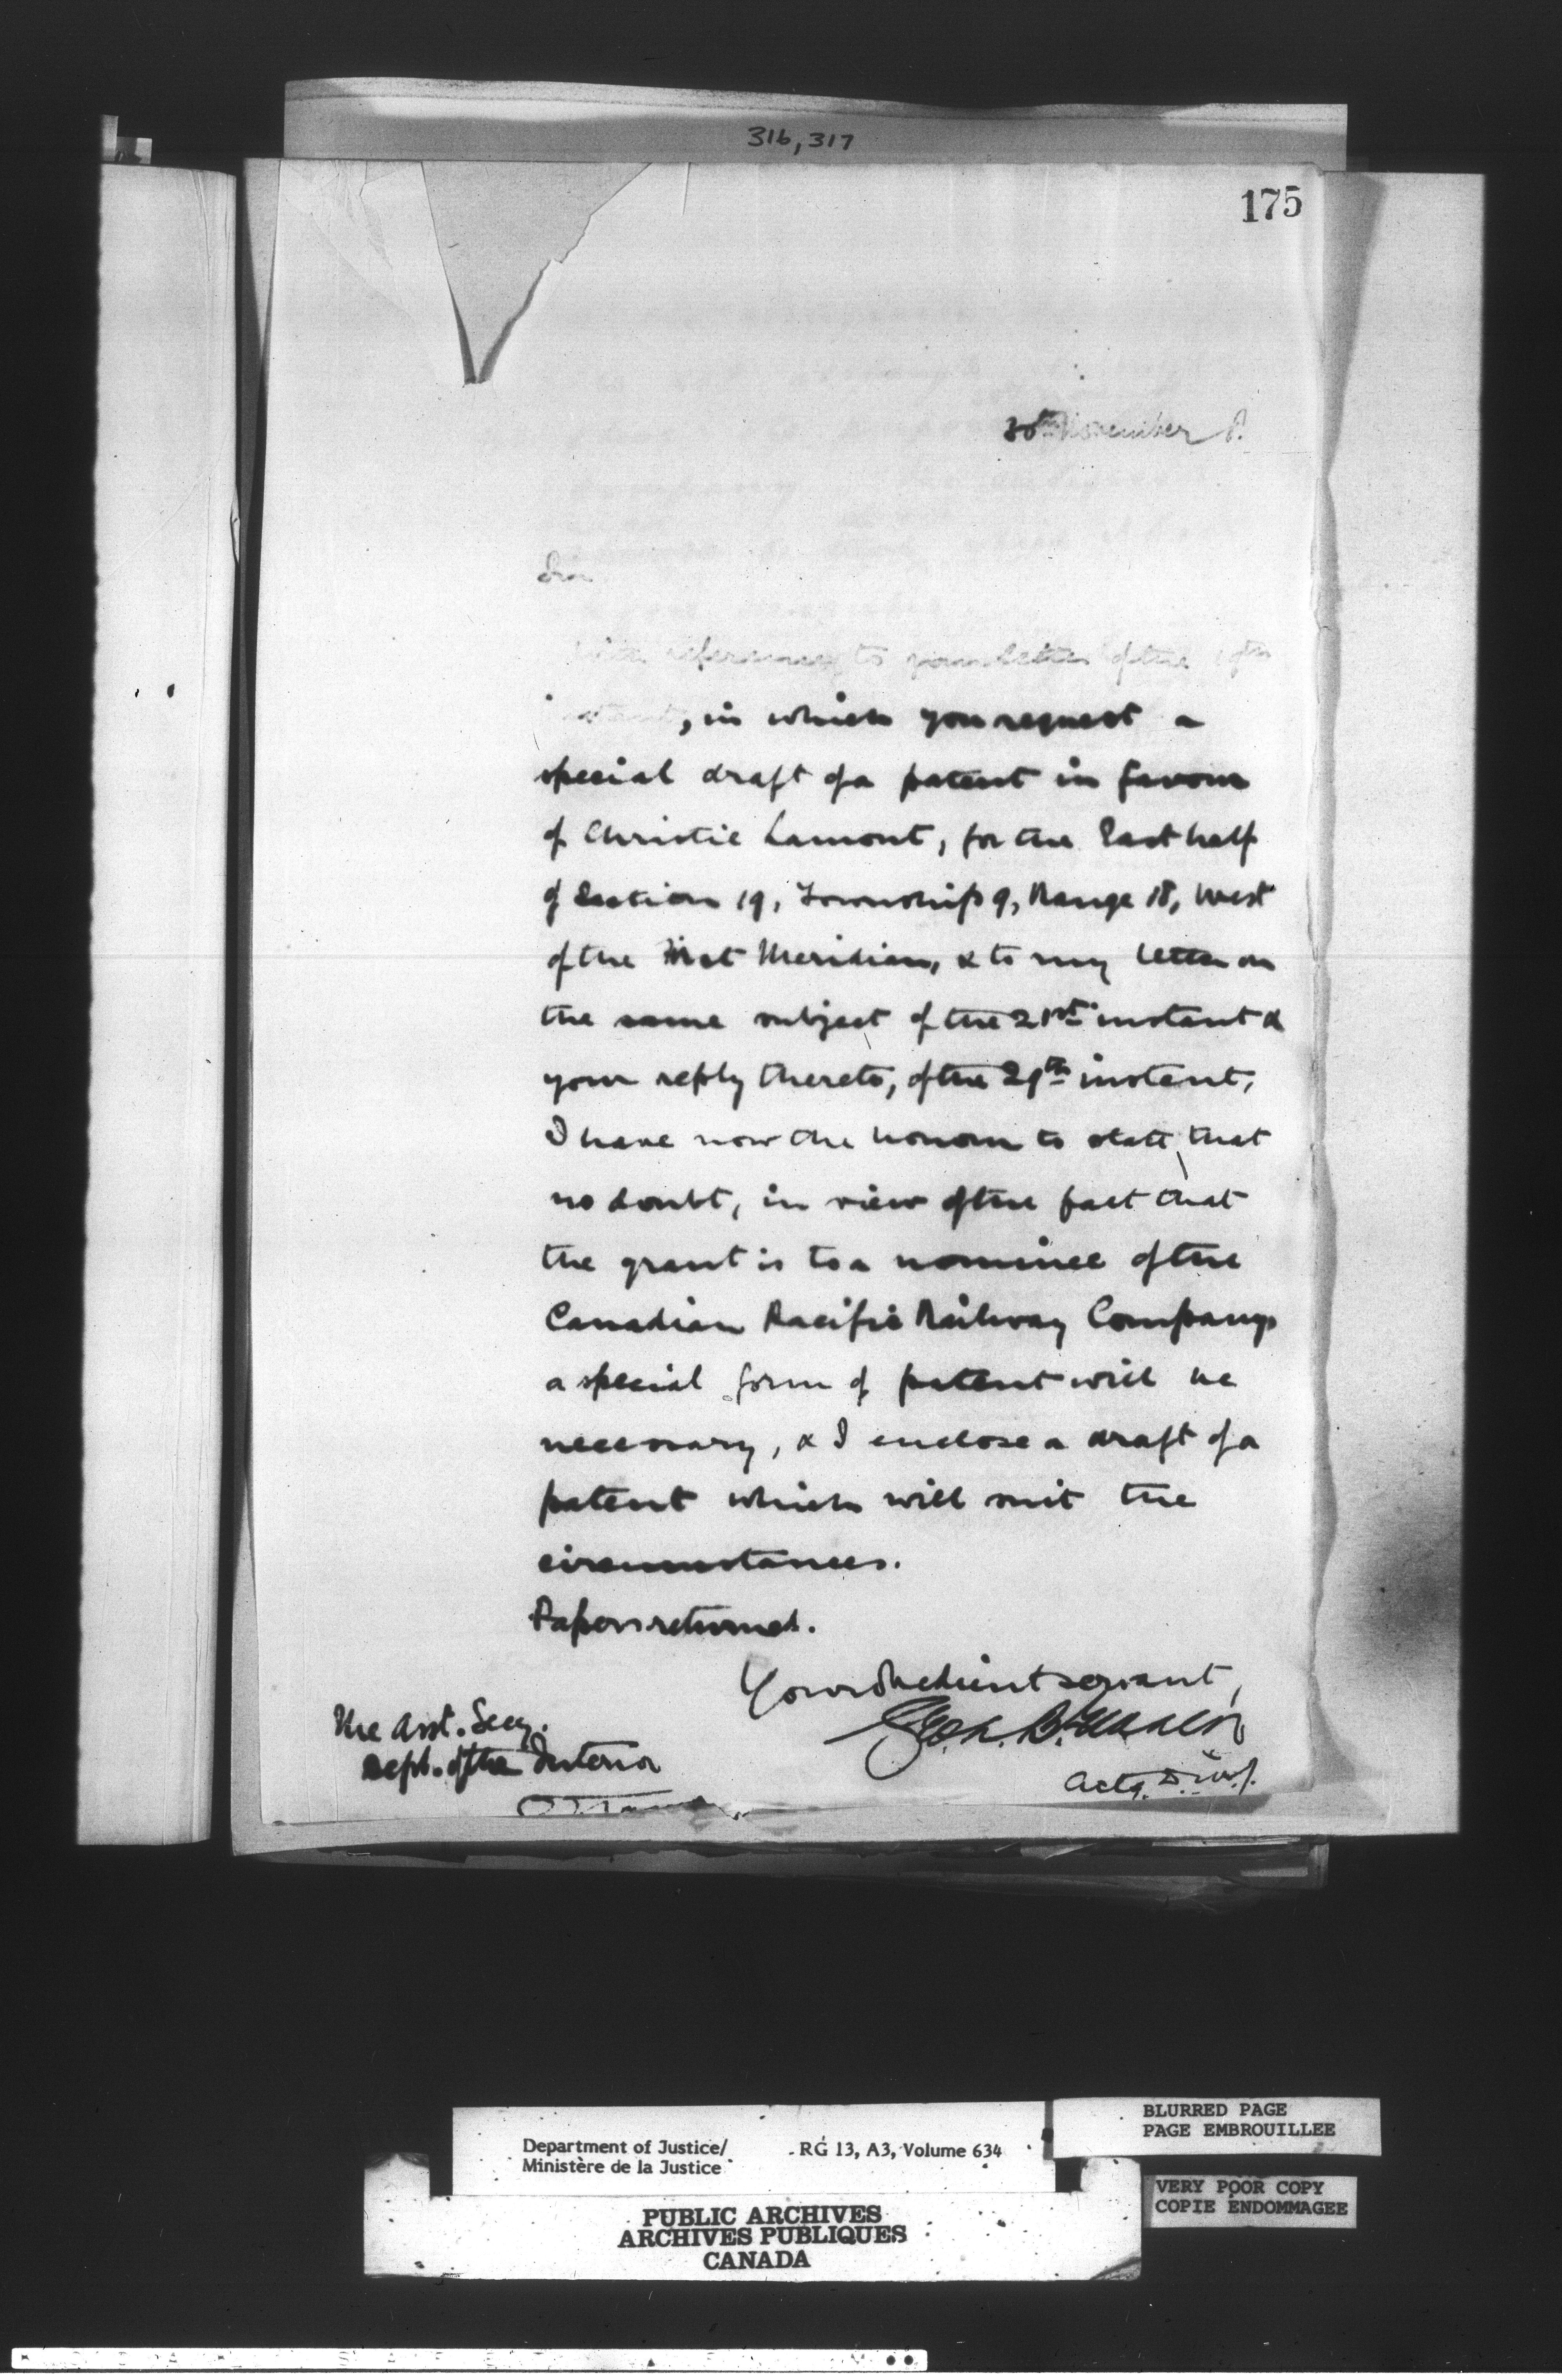 316, 317
175
30th November
Sir
With reference to your letter of the 19th
instant, in which you request a
special draft of a patent in favour
of Christie Lamont, for the East half
of Section 19, Township 9, Range 18, West
of the First Meridian, & to my letter on
the same subject of the 21st instant &
your reply thereto, of the 29th instant,
I have now the honour to state that
no doubt, in view of the fact that
the grant is to a nominee of the
Canadian Pacific Railway Company
a special form of patent will be
necessary, & I enclose a draft of a
patent which will suit the
circumstances.
Papers returned.
Your obedient servant,
Actg. D.M.J.
The Asst. Secy.
Dept. of the Interior
Ottawa
Department of Justice/
Ministère de la Justice
RG 13, A3, Volume 634
BLURRED PAGE
PAGE EMBROUILLEE
VERY POOR COPY
COPIE ENDOMMAGEE
PUBLIC ARCHIVES
ARCHIVES PUBLIQUES
CANADA